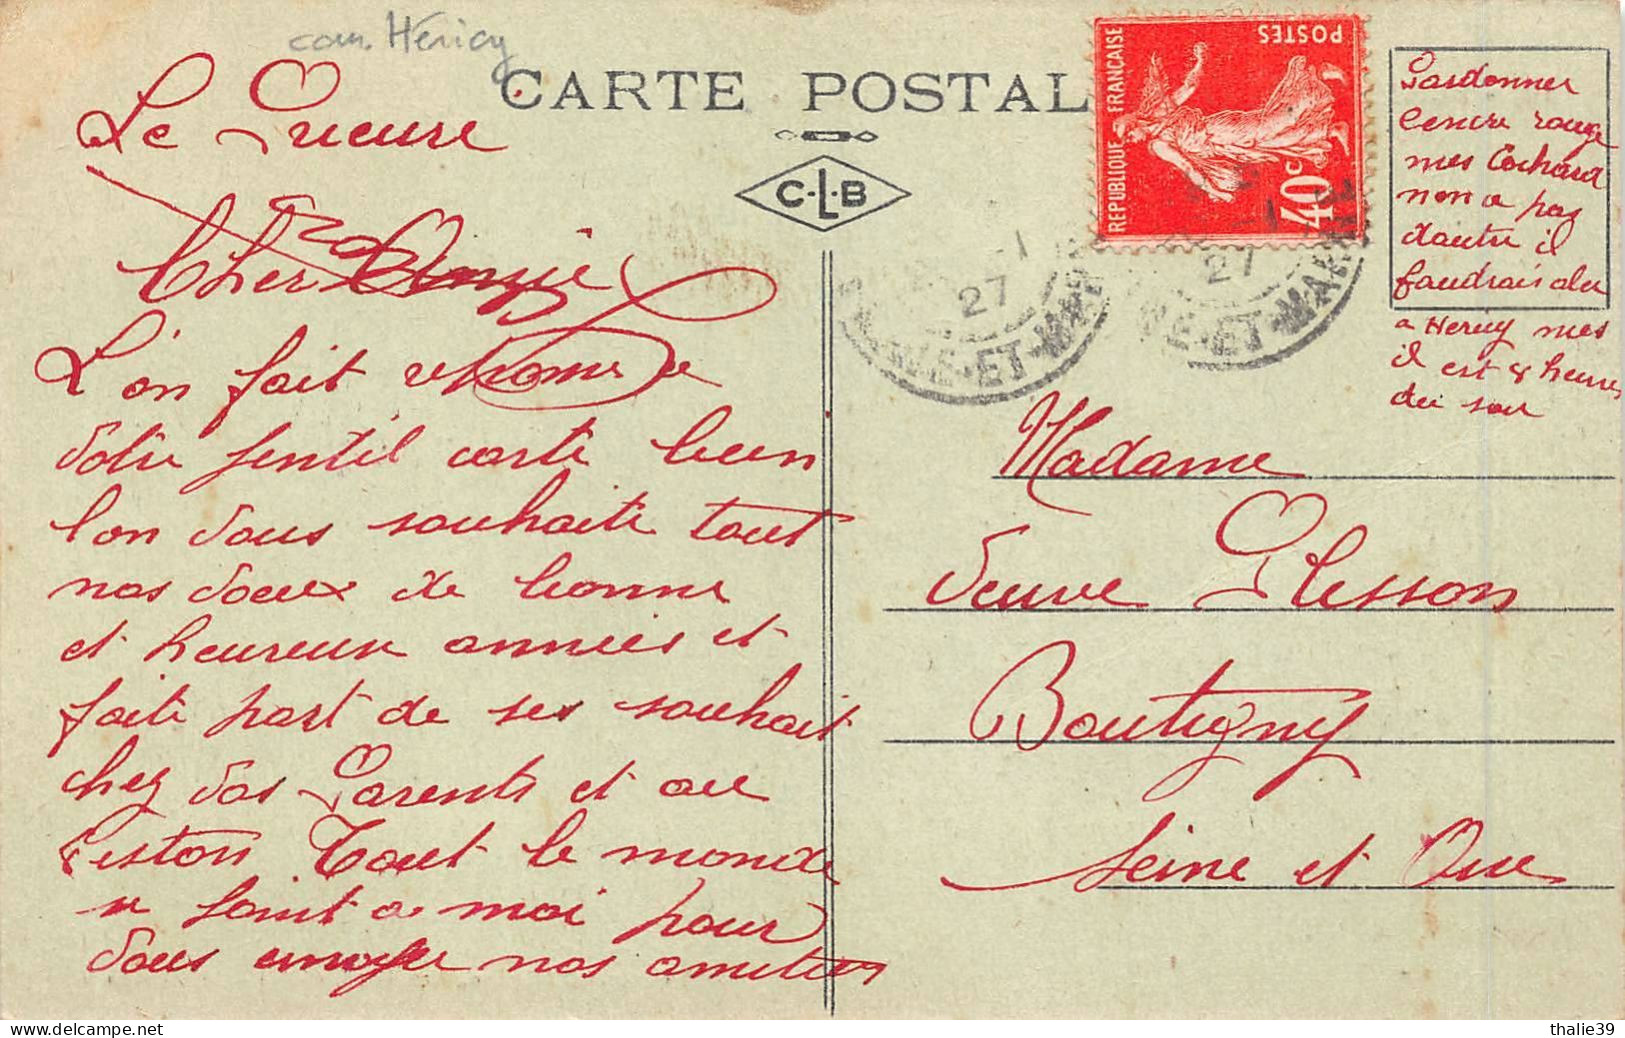 com. Héricy
CARTE POSTAL
C-L-B
REPUBLIQUE FRANÇAISE
POSTES
40c
27
27
ET-MAR
ET-MARNE
Le
Cher
L'on fait réponse
Votre gentil carte bien
l'on vous souhaite tout
nos voeux de bonne
et heureux année et
faite part de ses souhait
chez vos Parents et au
Tout le monde
se joint a moi pour
vous envoyer nos amitiers
Pardonner
l'encre rouge
mes Cochard
non a pas
dautre il
faudrais aler
a Hericy mes
il est 8 heures
du soir
Madame
Veuve Plesson
Boutigny
Seine et Oise
delcampe.net
thalie39